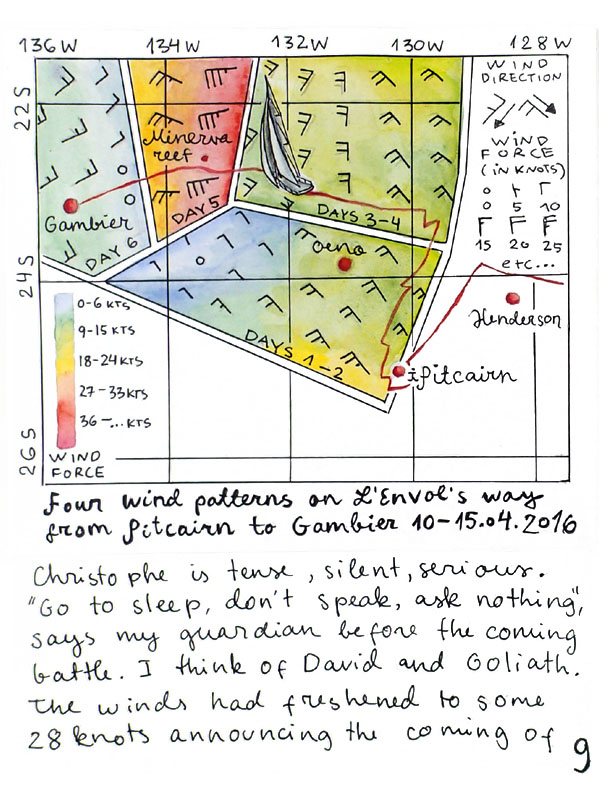 136 W 134 132 W 130 W 128 W
22 S
24 S
26 S
WIND
DIRECTION
WIND
FORCE
(IN KNOTS)
0 5 10
15 20 25
etc...
Minerva
reef
Gambier
DAY 6
DAY 5
DAYS 3-4
Oeno
DAYS 1-2
Henderson
Pitcairn
0-6 KTS
9-15 KTS
18-24 KTS
27-33 KTS
36-... KTS
WIND
FORCE
Four wind patterns on L'Envol's way
from Pitcairn to Gambier 10-15.04.2016
Christophe is tense, silent, serious.
"Go to sleep, don't speak, ask nothing",
says my guardian before the coming
battle. I think of David and Goliath.
The winds had freshened to some
28 knots announcing the coming of
9